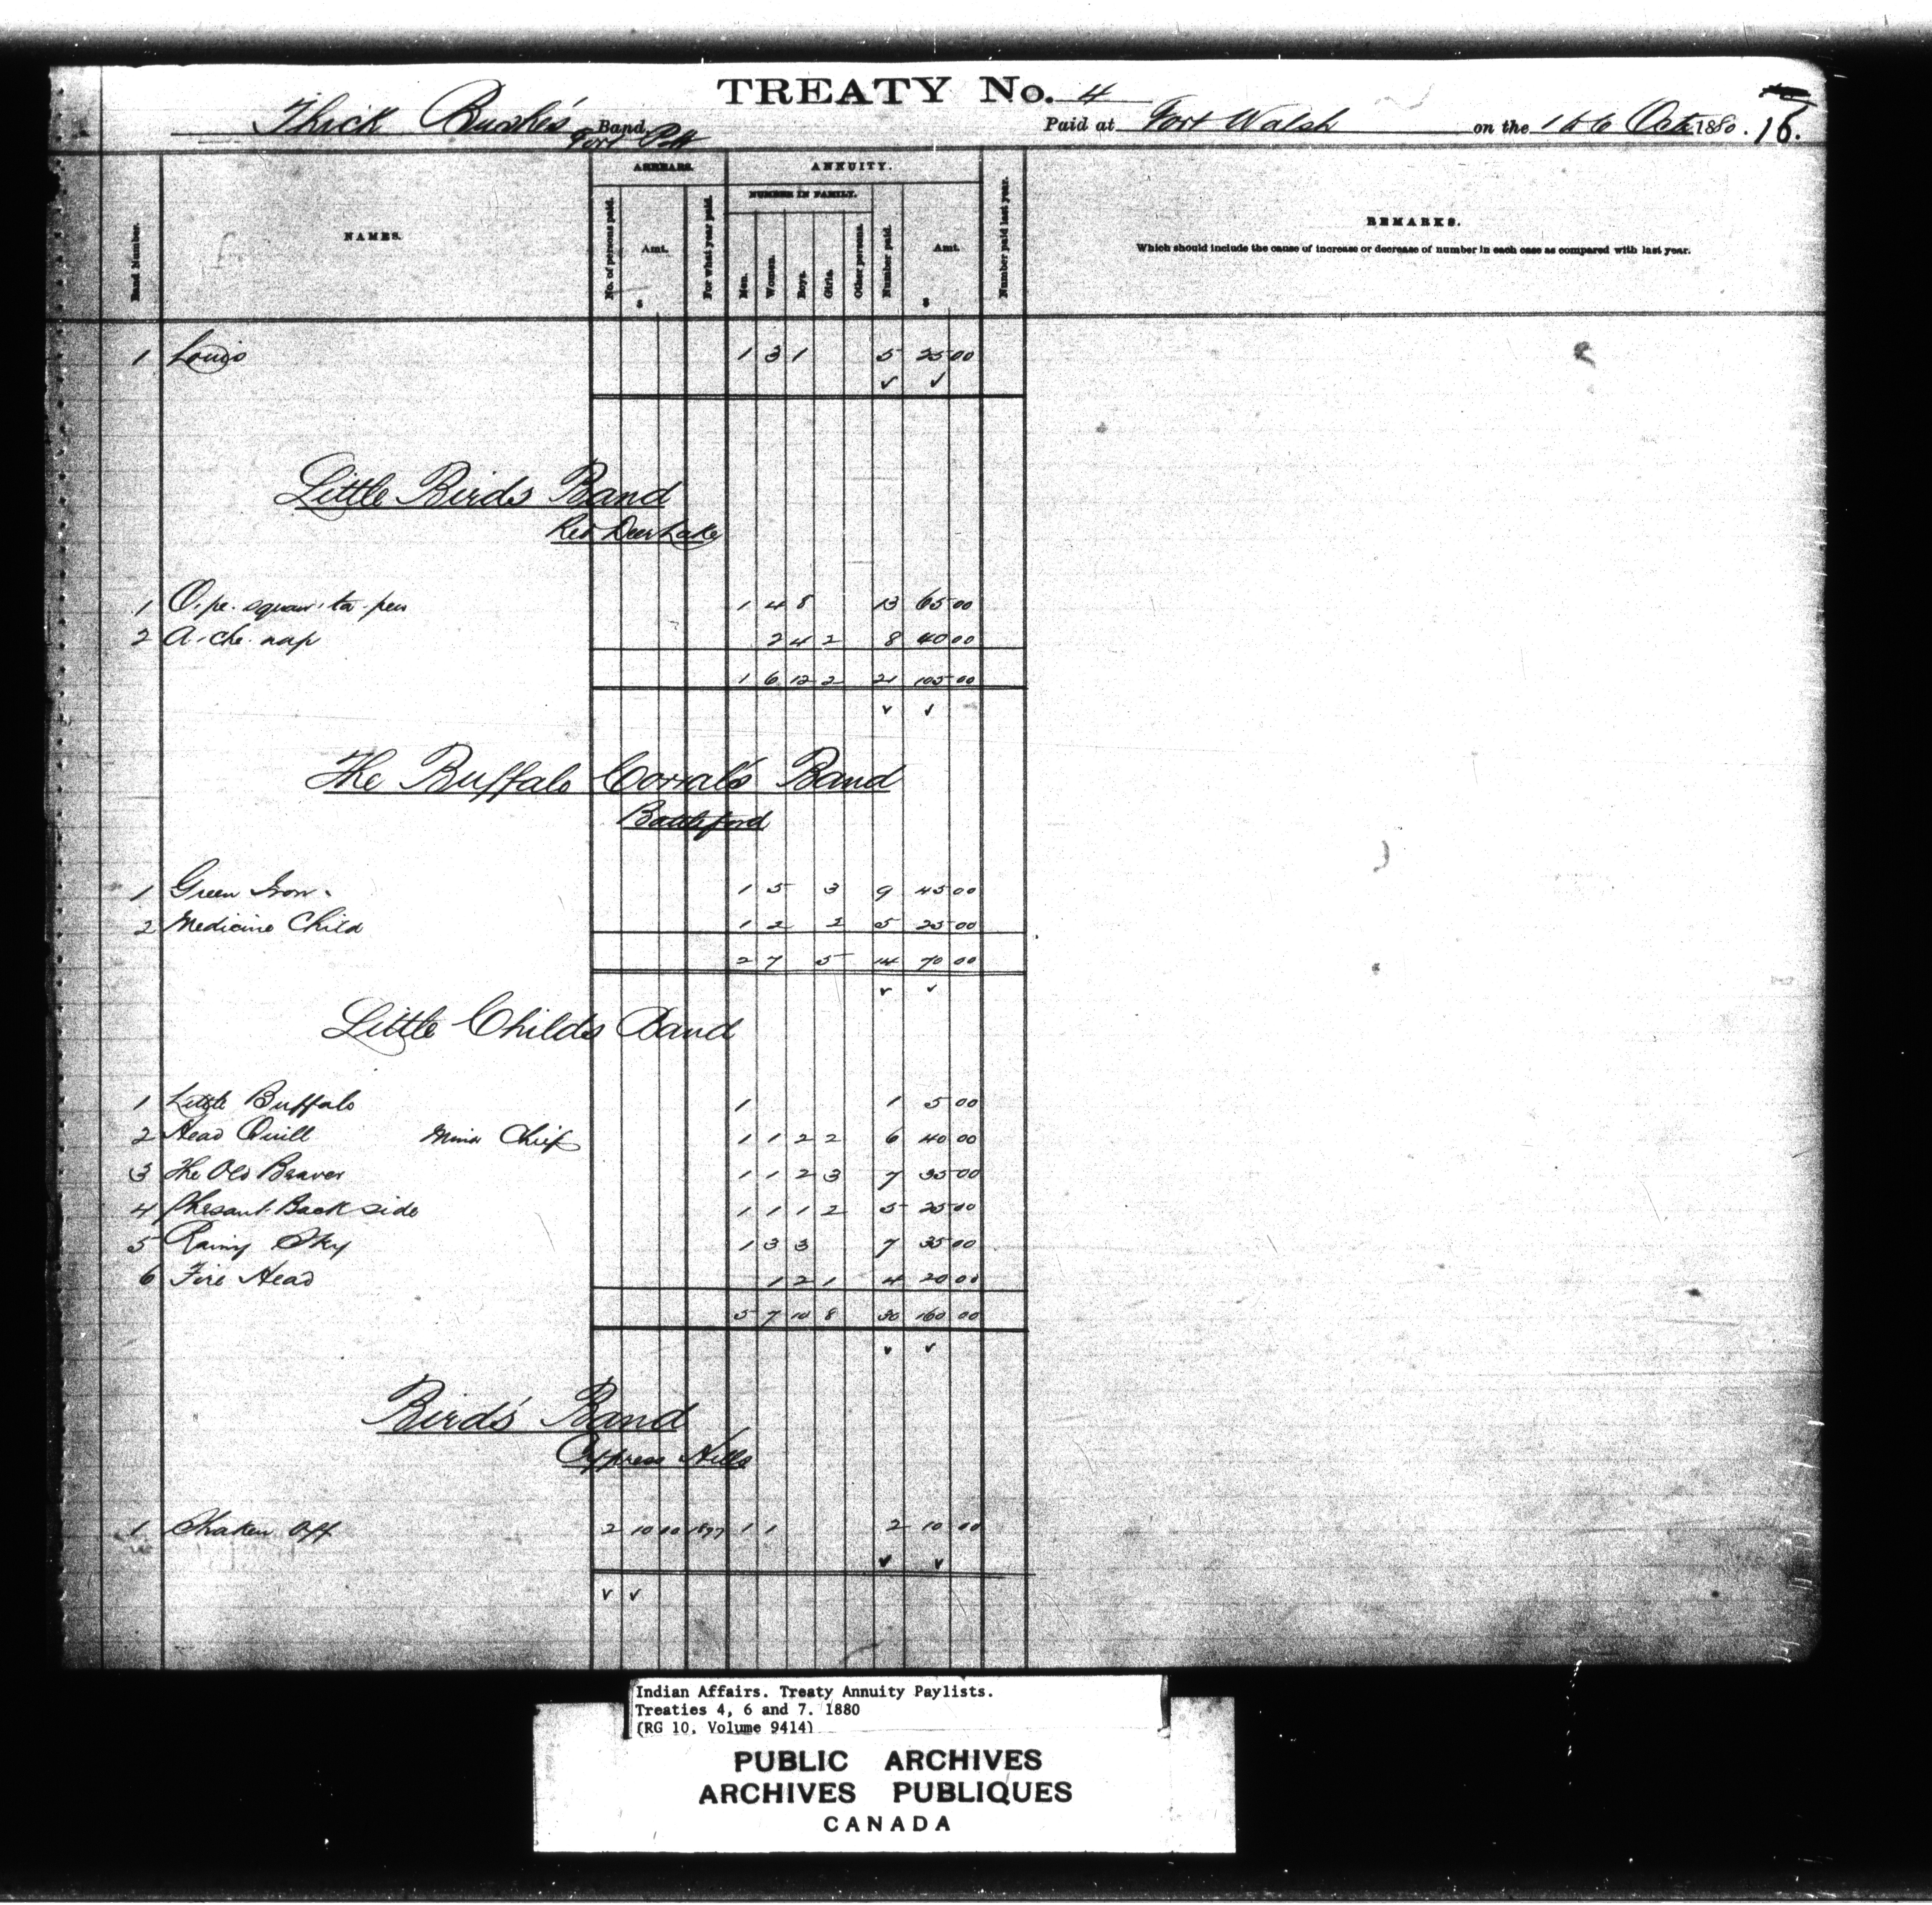 TREATY No. 4
Thick Bushe's Band Paid at Fort Walsh on the 1 to 6 Octr 1880. 16.
Fort Pitt
ARREARS. ANNUITY.
NUMBER IN FAMILY.
Band Number. NAMES. No. of persons paid. Amt. $ For what year paid. Men. Women. Boys. Girls. Other persons. Number paid. Amt. $ Number paid last year. REMARKS.
Which should include the cause of increase or decrease of number in each case as compared with last year.
1 Louis 1 3 1 5 25 00
Little Birds Band
Red Deer Lake
1 O. pe. squaw. ta. pew 1 4 8 13 65 00
2 A. che. nap 2 4 2 8 40 00
1 6 12 2 21 105 00
The Buffalo Corral's Band
Battleford
1 Green Iron 1 5 3 9 45 00
2 Medicine Child 1 2 2 5 25 00
2 7 5 14 70 00
Little Childs Band
1 Little Buffalo 1 1 5 00
2 Head Quill Minor Chief 1 1 2 2 6 40 00
3 The Old Beaver 1 1 2 3 7 35 00
4 Phesant Back side 1 1 1 2 5 25 00
5 Rainy Sky 1 3 3 7 35 00
6 Fire Head 1 2 1 4 20 00
5 7 10 8 30 160 00
Bird's Band
Cypress Hills
1 Shaken Off 2 10 00 1877 1 1 2 10 00
Indian Affairs. Treaty Annuity Paylists.
Treaties 4, 6 and 7. 1880
(RG 10, Volume 9414)
PUBLIC ARCHIVES
ARCHIVES PUBLIQUES
CANADA